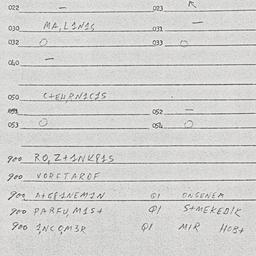 022 – 023
030 MA,L1N1S 031 –
032 O 033 O
040 –
050 C+EU,RN1C1S
052 –
053 O 054 O
900 RO,Z+1NK81S
900 VORETAROF
900 Q1 ONGENEM
900 PARFU,M1S+ Q1 S+MEKED1K
900 1NCOM3R Q1 MIR HOB+